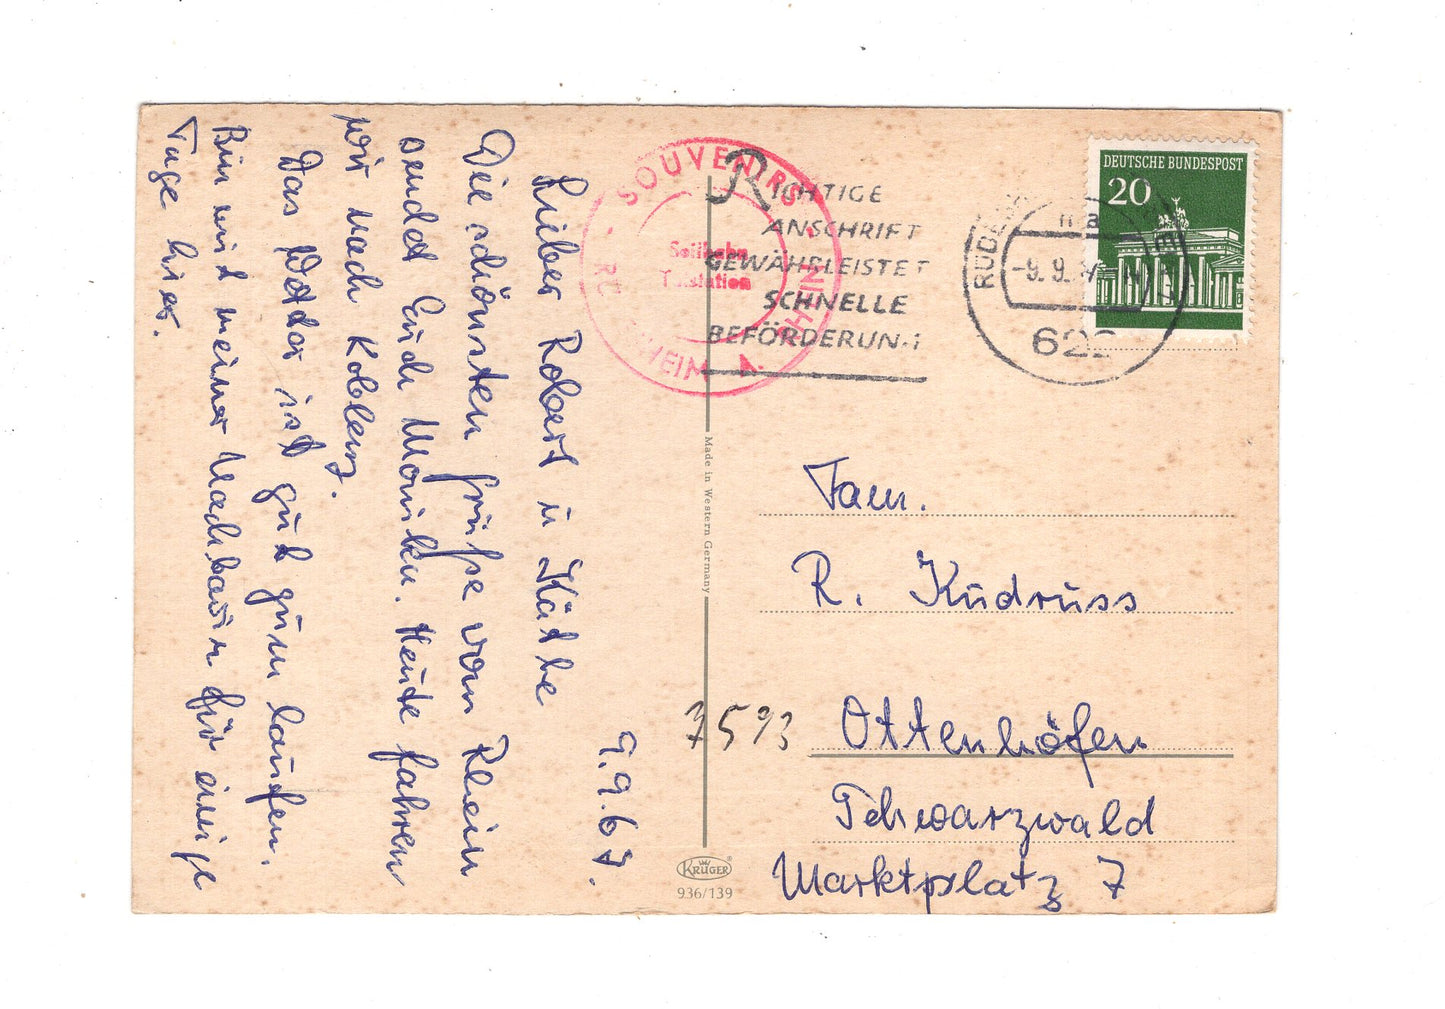 9.9.67.
Lieber Robert u Käthe
Die schönsten Grüße vom Rhein
sendet Euch Monika. Heute fahren
wir nach Koblenz.
Das Wetter ist gut zum laufen.
Bin mit meiner Nachbarin für einige
Tage hier.
SOUVENIRS
Seilbahn
Talstation
HEIM A. RHEIN
RICHTIGE
ANSCHRIFT
GEWÄHRLEISTET
SCHNELLE
BEFÖRDERUNG
RÜDES
-9.9.67
622
DEUTSCHE BUNDESPOST
20
Made in Western Germany
Fam.
R. Kudruss
7593 Ottenhöfen
Schwarzwald
Marktplatz 7
KRÜGER
936/139